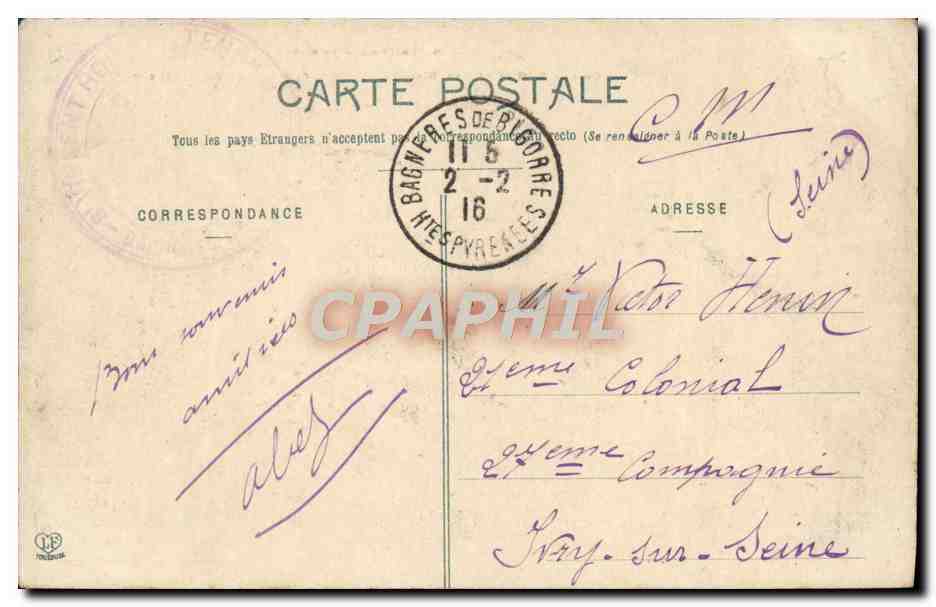 CARTE POSTALE
Tous les pays Etrangers n'acceptent pas la Correspondance au recto (Se renseigner à la Poste)
C M
(Seine)
BAGNERES DE BIGORRE
11 5
2 - 2
16
HTES PYRENEES
CORRESPONDANCE
ADRESSE
Bons souvenirs
amitiés
Mr Victor Henin
21eme Colonial
27eme Compagnie
Ivry-sur-Seine
CPAPHIL
LF
TOULOUSE